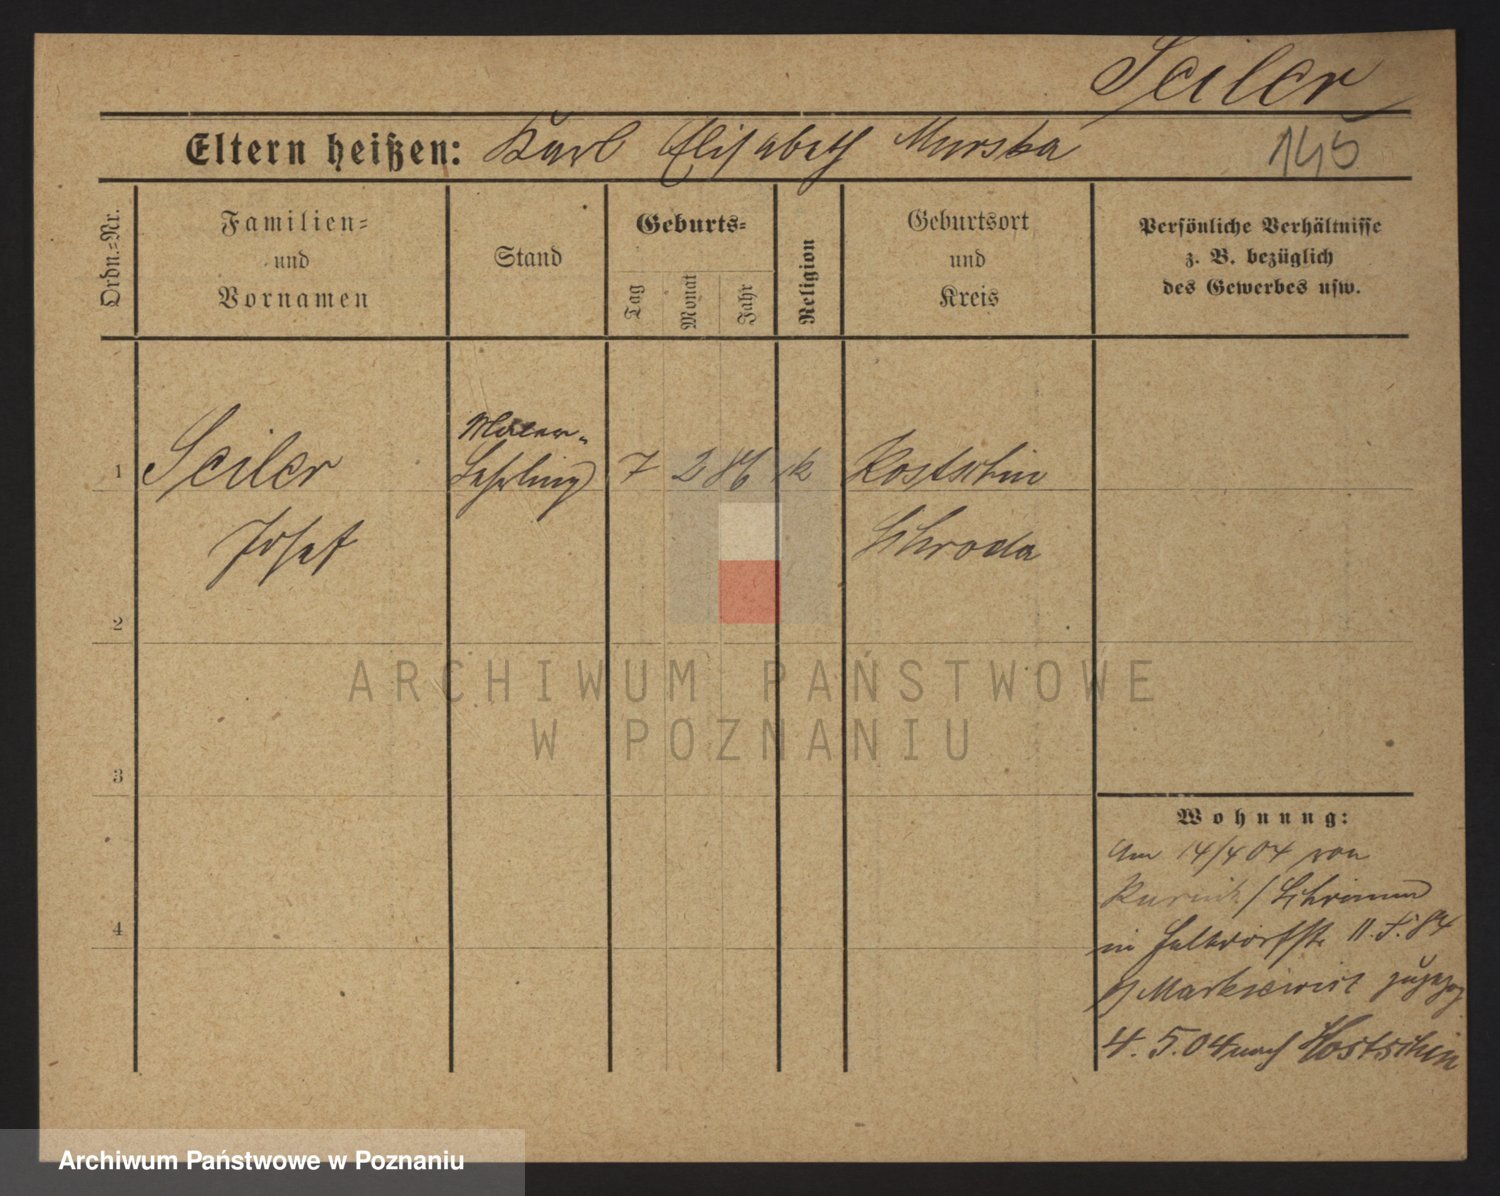 Seiler
Eltern heißen: Karl Elisabeth Murska
145
Ordn.=Nr.
Familien=
und
Vornamen
Stand
Geburts=
Tag
Monat
Jahr
Religion
Geburtsort
und
Kreis
Persönliche Verhältnisse
z. B. bezüglich
des Gewerbes usw.
Maler-
1 Seiler Lehrling 7 2 86 k Kostschin
Josef Schroda
2
ARCHIWUM PAŃSTWOWE
W POZNANIU
3
Wohnung:
Am 14/4 04 von
Kurnik / Schrimm
in
4
Markiewicz zugezog
4. 5. 04 nach Kostschin
Archiwum Państwowe w Poznaniu